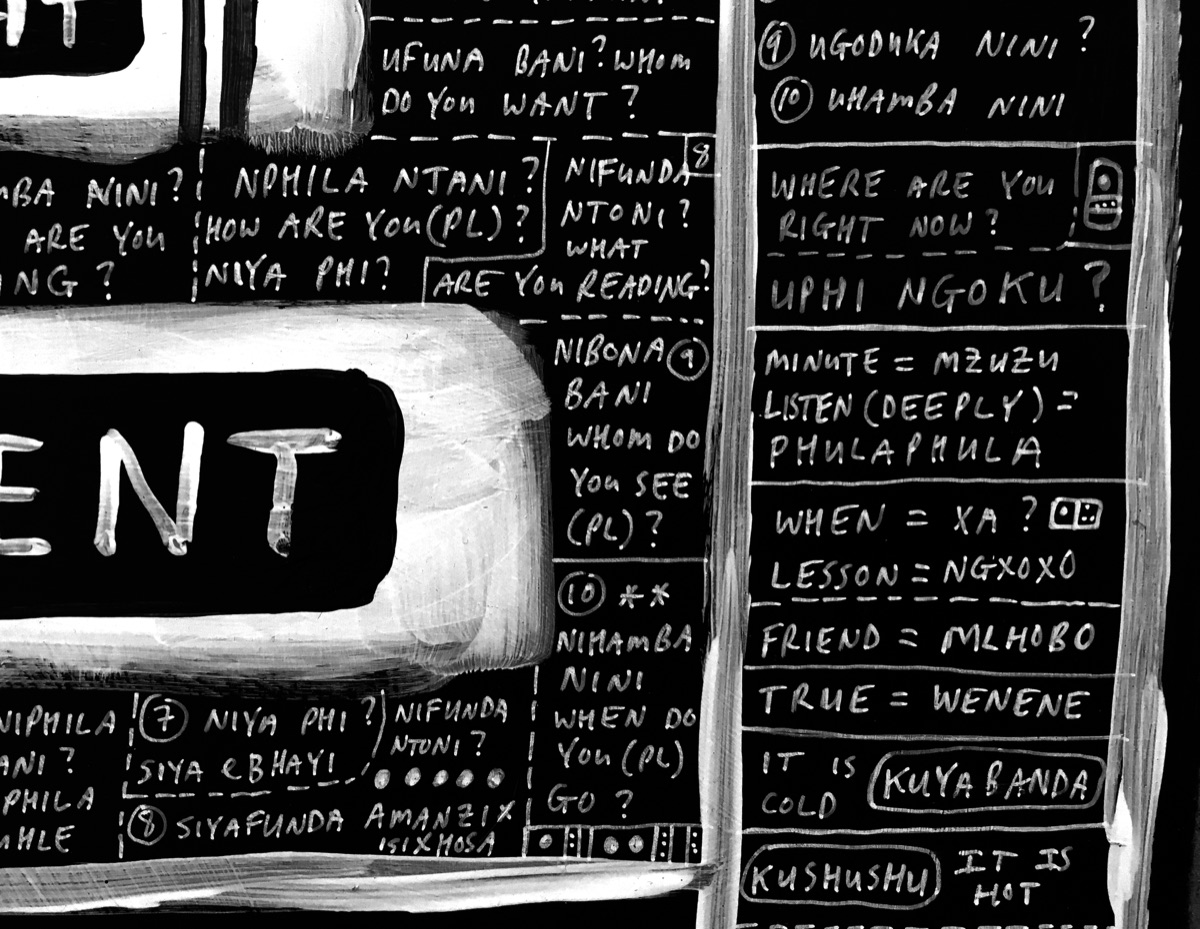 UFUNA BANI? WHOM
DO YOU WANT?
NINI?
ARE YOU
NG?
NPHILA NJANI?
HOW ARE YOU (PL)?
NIYA PHI?
8
NIFUNDA
NTONI?
WHAT
ARE YOU READING?
NIBONA 9
BANI
WHOM DO
YOU SEE
(PL)?
ENT
10 **
NIHAMBA
NINI
WHEN DO
YOU (PL)
GO?
NIPHILA
ANI?
PHILA
HLE
7 NIYA PHI?
SIYA eBHAYI
8 SIYAFUNDA
NIFUNDA
NTONI?
AMANZI X
ISIXHOSA
9 UGODUKA NINI?
10 UHAMBA NINI
WHERE ARE YOU
RIGHT NOW?
UPHI NGOKU?
MINUTE = MZUZU
LISTEN (DEEPLY) =
PHULAPHULA
WHEN = XA?
LESSON = NGXOXO
FRIEND = MLHOBO
TRUE = WENENE
IT IS
COLD
KUYABANDA
KUSHUSHU
IT IS
HOT